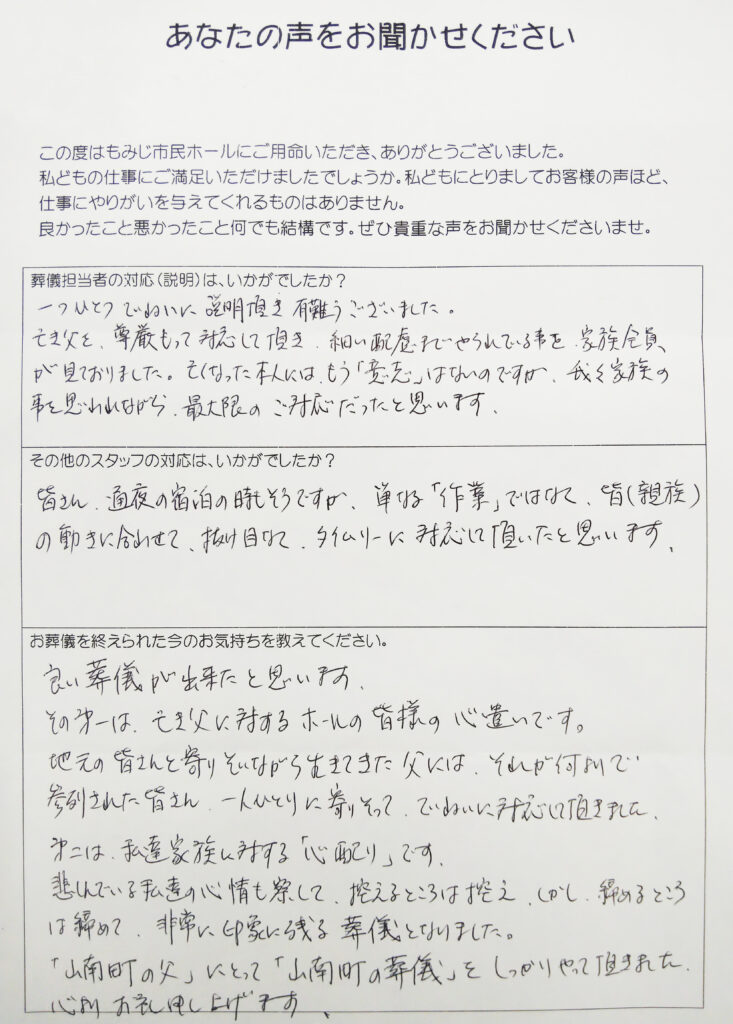 あなたの声をお聞かせください
この度はもみじ市民ホールにご用命いただき、ありがとうございました。
私どもの仕事にご満足いただけましたでしょうか。私どもにとりましてお客様の声ほど、
仕事にやりがいを与えてくれるものはありません。
良かったこと悪かったこと何でも結構です。ぜひ貴重な声をお聞かせくださいませ。
葬儀担当者の対応(説明)は、いかがでしたか?
一つひとつていねいに説明頂き有難うございました。
亡き父を、尊厳もって対応して頂き、細い配慮までやられている事を、家族全員、
が見ておりました。亡くなった本人には、もう「意志」はないのですが、我々家族の
事を思われながら、最大限のご対応だったと思います、
その他のスタッフの対応は、いかがでしたか?
皆さん、通夜の宿泊の時もそうですが、単なる「作業」ではなくて、皆(親族)
の動きに合わせて、抜け目なく、タイムリーに対応して頂いたと思います、
お葬儀を終えられた今のお気持ちを教えてください。
良い葬儀が出来たと思います、
その第一は、亡き父に対するホールの皆様の心遣いです。
地元の皆さんと寄りそいながら生きてきた父には、それが何よりで
参列された皆さん、一人ひとりに寄りそって、ていねいに対応して頂きました、
第二は、私達家族に対する「心配り」です、
悲しんでいる私達の心情も察して、控えるところは控え、しかし、締めるところ
は締めて、非常に印象に残る葬儀となりました。
「山南町の父」にとって「山南町の葬儀」をしっかりやって頂きました、
心よりお礼申し上げます、